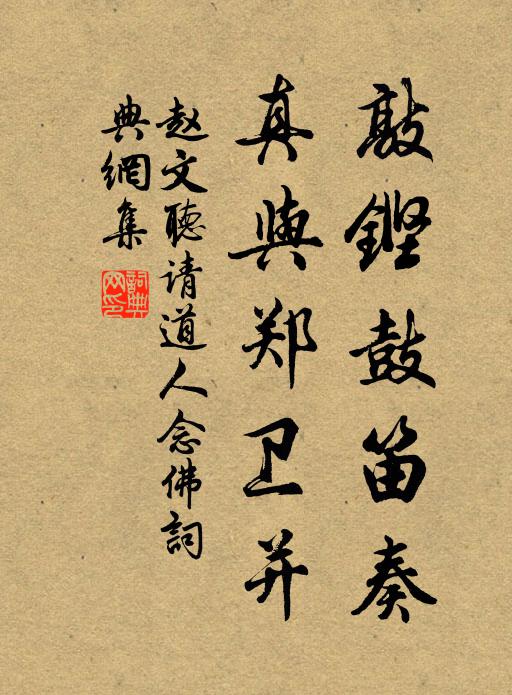 敲鏗鼓笛奏
真與郑卫并
赵文聽请道人念佛詞
典網集
詞典网印